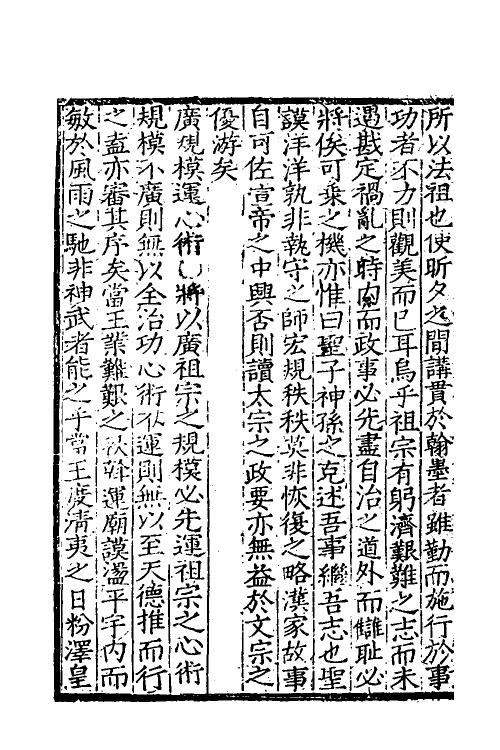 所以法祖也使昕夕之間講貫於翰墨者雖勤而施行於事
功者不力則觀美而已耳烏乎祖宗有躬濟艱難之志而未
遇戡定禍亂之時內而政事必先盡自治之道外而讎恥必
將俟可乗之機亦惟曰聖子神孫之克述吾事繼吾志也聖
謨洋洋孰非執守之師宏規秩秩莫非恢復之略漢家故事
自可佐宣帝之中興否則讀太宗之政要亦無益於文宗之
優游矣
廣規模運心術 將以廣祖宗之規模必先運祖宗之心術
規模不廣則無以全治功心術不運則無以至天德推而行
之盍亦審其序矣當王業難艱之 斡運廟謨盪平宇內而
敏於風雨之馳非神武者能之乎當王度清夷之日粉澤皇